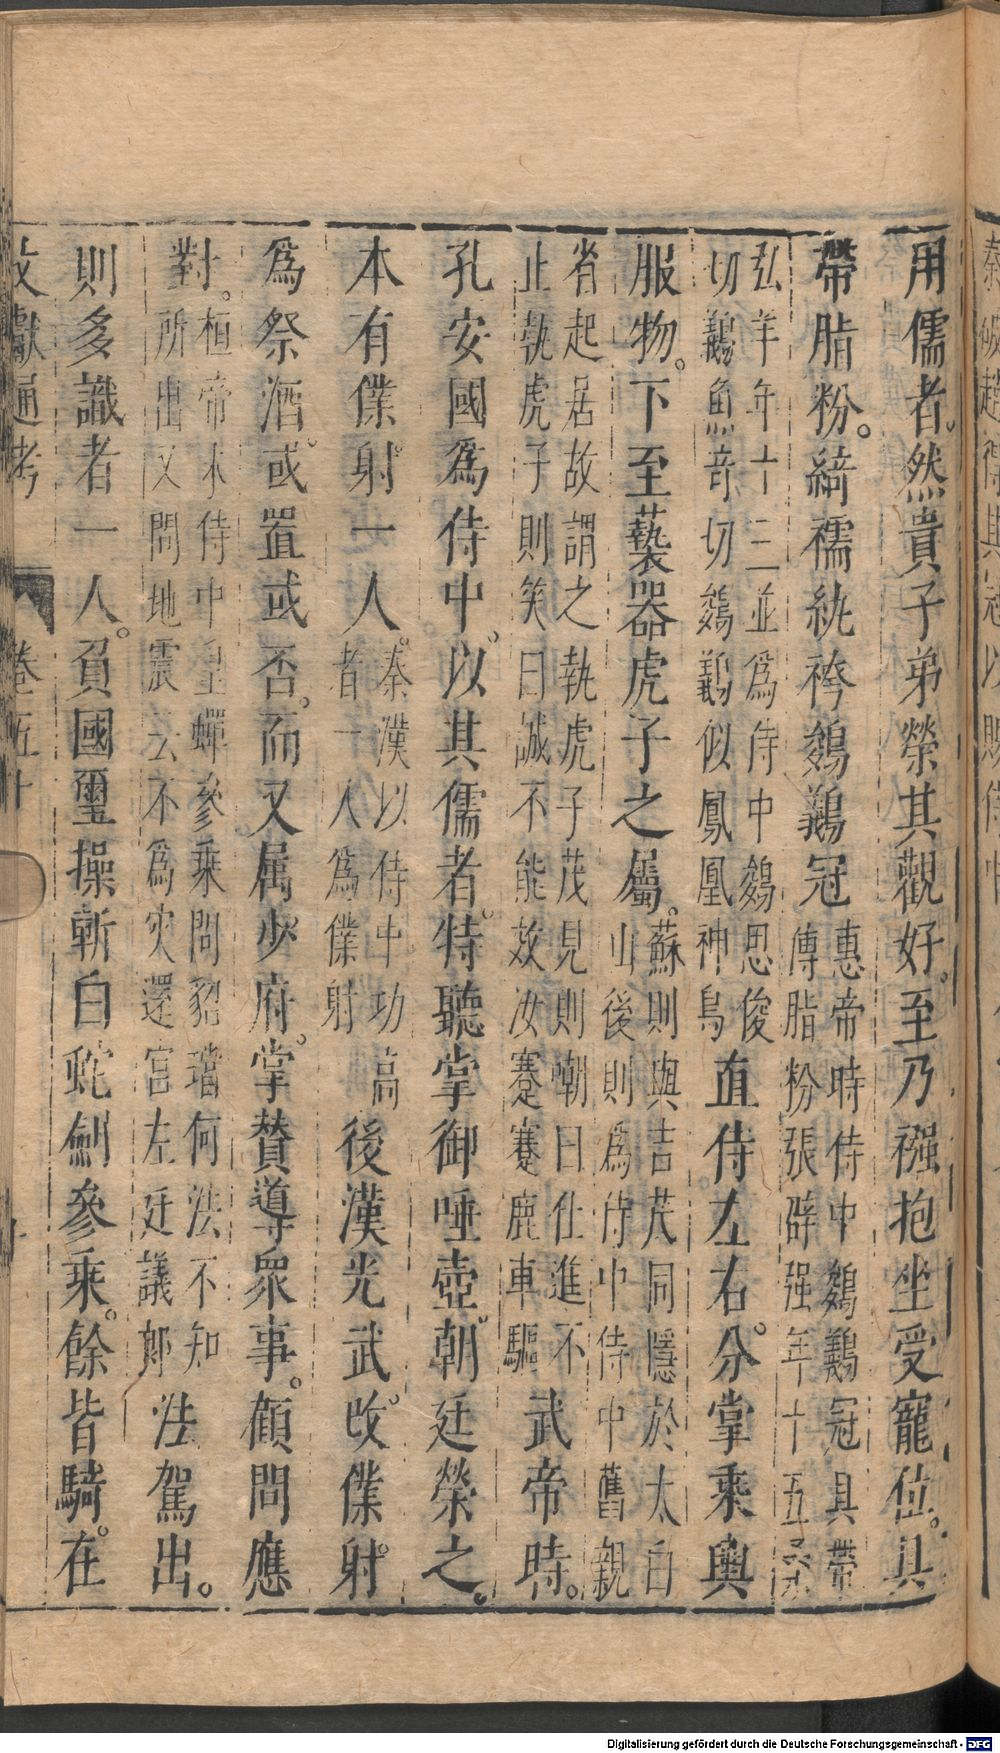 用儒者。然貴子弟榮其觀好。至乃襁抱坐受寵位。具
帶脂粉。綺襦紈袴鵕䴊冠
惠帝時侍中鵕䴊冠具帶
傅脂粉張辟强年十五桑
弘羊年十三並為侍中鵕思俊
切䴊魚竒切鵕䴊似鳳凰神鳥
直侍左右。分掌乘輿
服物。下至䙝器虎子之屬。
蘇則與吉茂同隱於太白
山後則為侍中侍中舊親
省起居故謂之執虎子茂見則嘲曰仕進不
止執虎子則笑曰誠不能效汝蹇蹇鹿車驅
武帝時。
孔安國爲侍中。以其儒者。特聽掌御唾壺。朝廷榮之。
本有僕射一人。
秦漢以侍中功高
者一人為僕射
後漢光武改僕射。
爲祭酒。或置或否。而又属少府。掌賛導衆事。顧問應
對。
桓帝末侍中皇蟬參乘問貂璫何法不知
所出又問地震云不為灾還宮左廷議郎
法駕出。
則多識者一人。負國璽操斬白蛇劍參乘。餘皆騎。在
文獻通考
卷五十
Digitalisierung gefördert durch die Deutsche Forschungsgemeinschaft - DFG